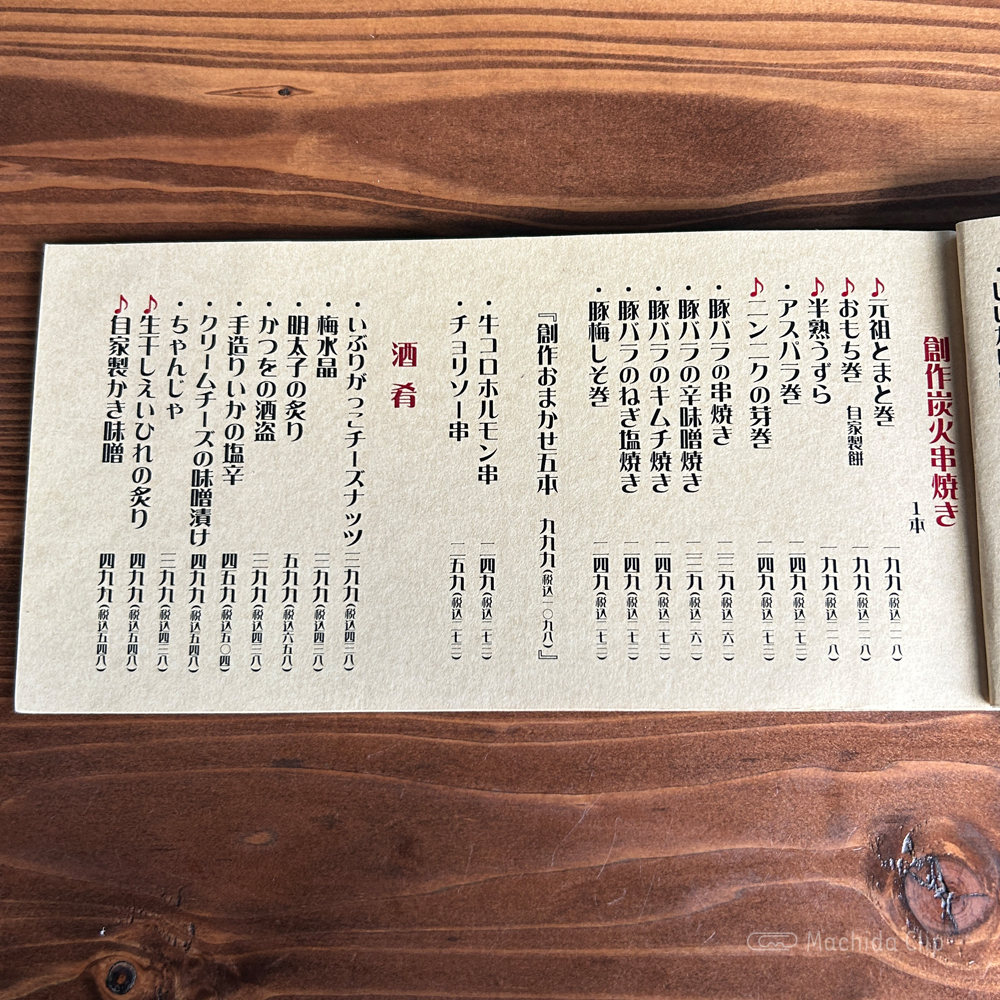 創作炭火串焼き
1本
♪元祖とまと巻 一九九(税込二一八)
♪おもち巻 自家製餅 一九九(税込二一八)
♪半熟うずら 一九九(税込二一八)
・アスパラ巻 二四九(税込二七三)
♪ニンニクの芽巻 二四九(税込二七三)
・豚バラの串焼き 二三九(税込二六二)
・豚バラの辛味噌焼き 二三九(税込二六二)
・豚バラのキムチ焼き 二四九(税込二七三)
・豚バラのねぎ塩焼き 二四九(税込二七三)
・豚梅しそ巻 二四九(税込二七三)
『創作おまかせ五本 九九九(税込一〇九八)』
・牛コロホルモン串 二四九(税込二七三)
・チョリソー串 二五九(税込二七三)
酒肴
・いぶりがっこチーズナッツ 三九九(税込四三八)
・梅水晶 三九九(税込四三八)
・明太子の炙り 五九九(税込六五八)
・かつをの酒盗 三九九(税込四三八)
・手造りいかの塩辛 四五九(税込五〇四)
・クリームチーズの味噌漬け 四九九(税込五四八)
・ちゃんじゃ 三九九(税込四三八)
♪生干しえいひれの炙り 四九九(税込五四八)
♪自家製かき味噌 四九九(税込五四八)
Machida Clip